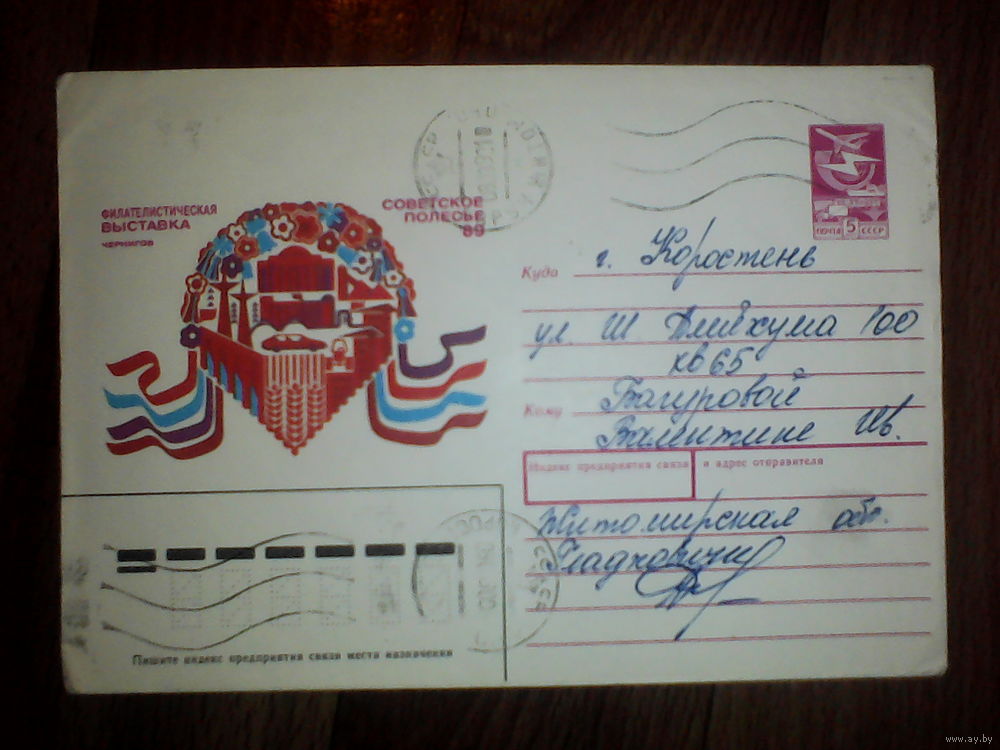 ФИЛАТЕЛИСТИЧЕСКАЯ
ВЫСТАВКА
ЧЕРНИГОВ
СОВЕТСКОЕ
ПОЛЕСЬЕ
89
ПОЧТА 5 СССР
Куда г. Коростень
ул. Ш. Алейхума 100
кв 65
Кому Багуровой
Валентине Ив.
Индекс предприятия связи и адрес отправителя
Житомирская обл.
Гладковичи
Пишите индекс предприятия связи места назначения
www.ay.by